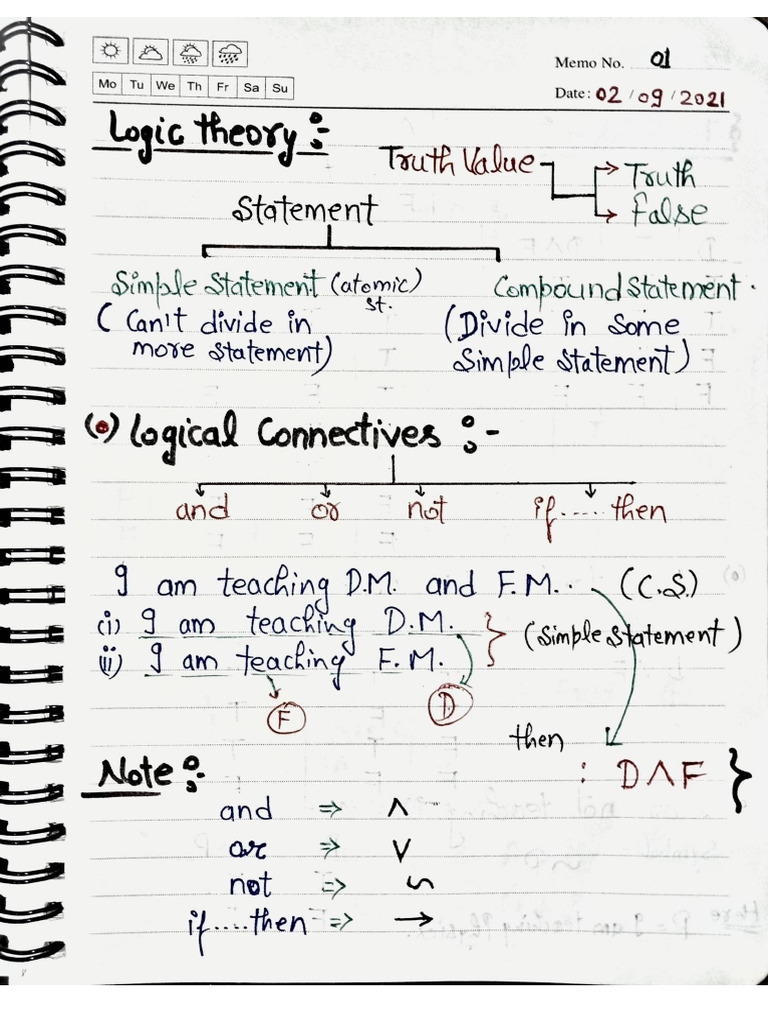 Memo No. 01
Mo Tu We Th Fr Sa Su
Date: 02/09/2021
Logic theory :-
Truth Value
Truth
False
Statement
Simple Statement (atomic) st.
Compound Statement.
(Can't divide in
more statement)
(Divide in some
Simple statement)
(•) Logical Connectives :-
and or not if.....then
I am teaching D.M. and F.M. (C.S.)
(i) I am teaching D.M.
(ii) I am teaching F.M.
(Simple Statement)
F D
then : D∧F }
Note :-
and => ∧
or => ∨
not => ∽
if....then => →